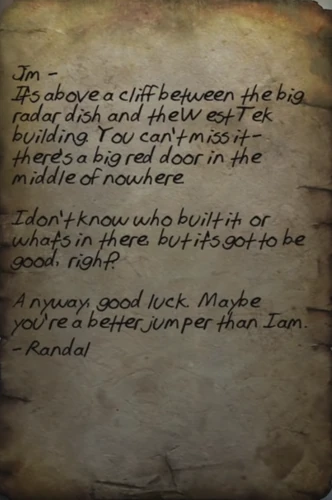 Jm -
It's above a cliff between the big
radar dish and the West Tek
building. You can't miss it-
there's a big red door in the
middle of nowhere
I don't know who built it or
what's in there, but it's got to be
good, right?
Anyway, good luck. Maybe
you're a better jumper than I am.
-Randal